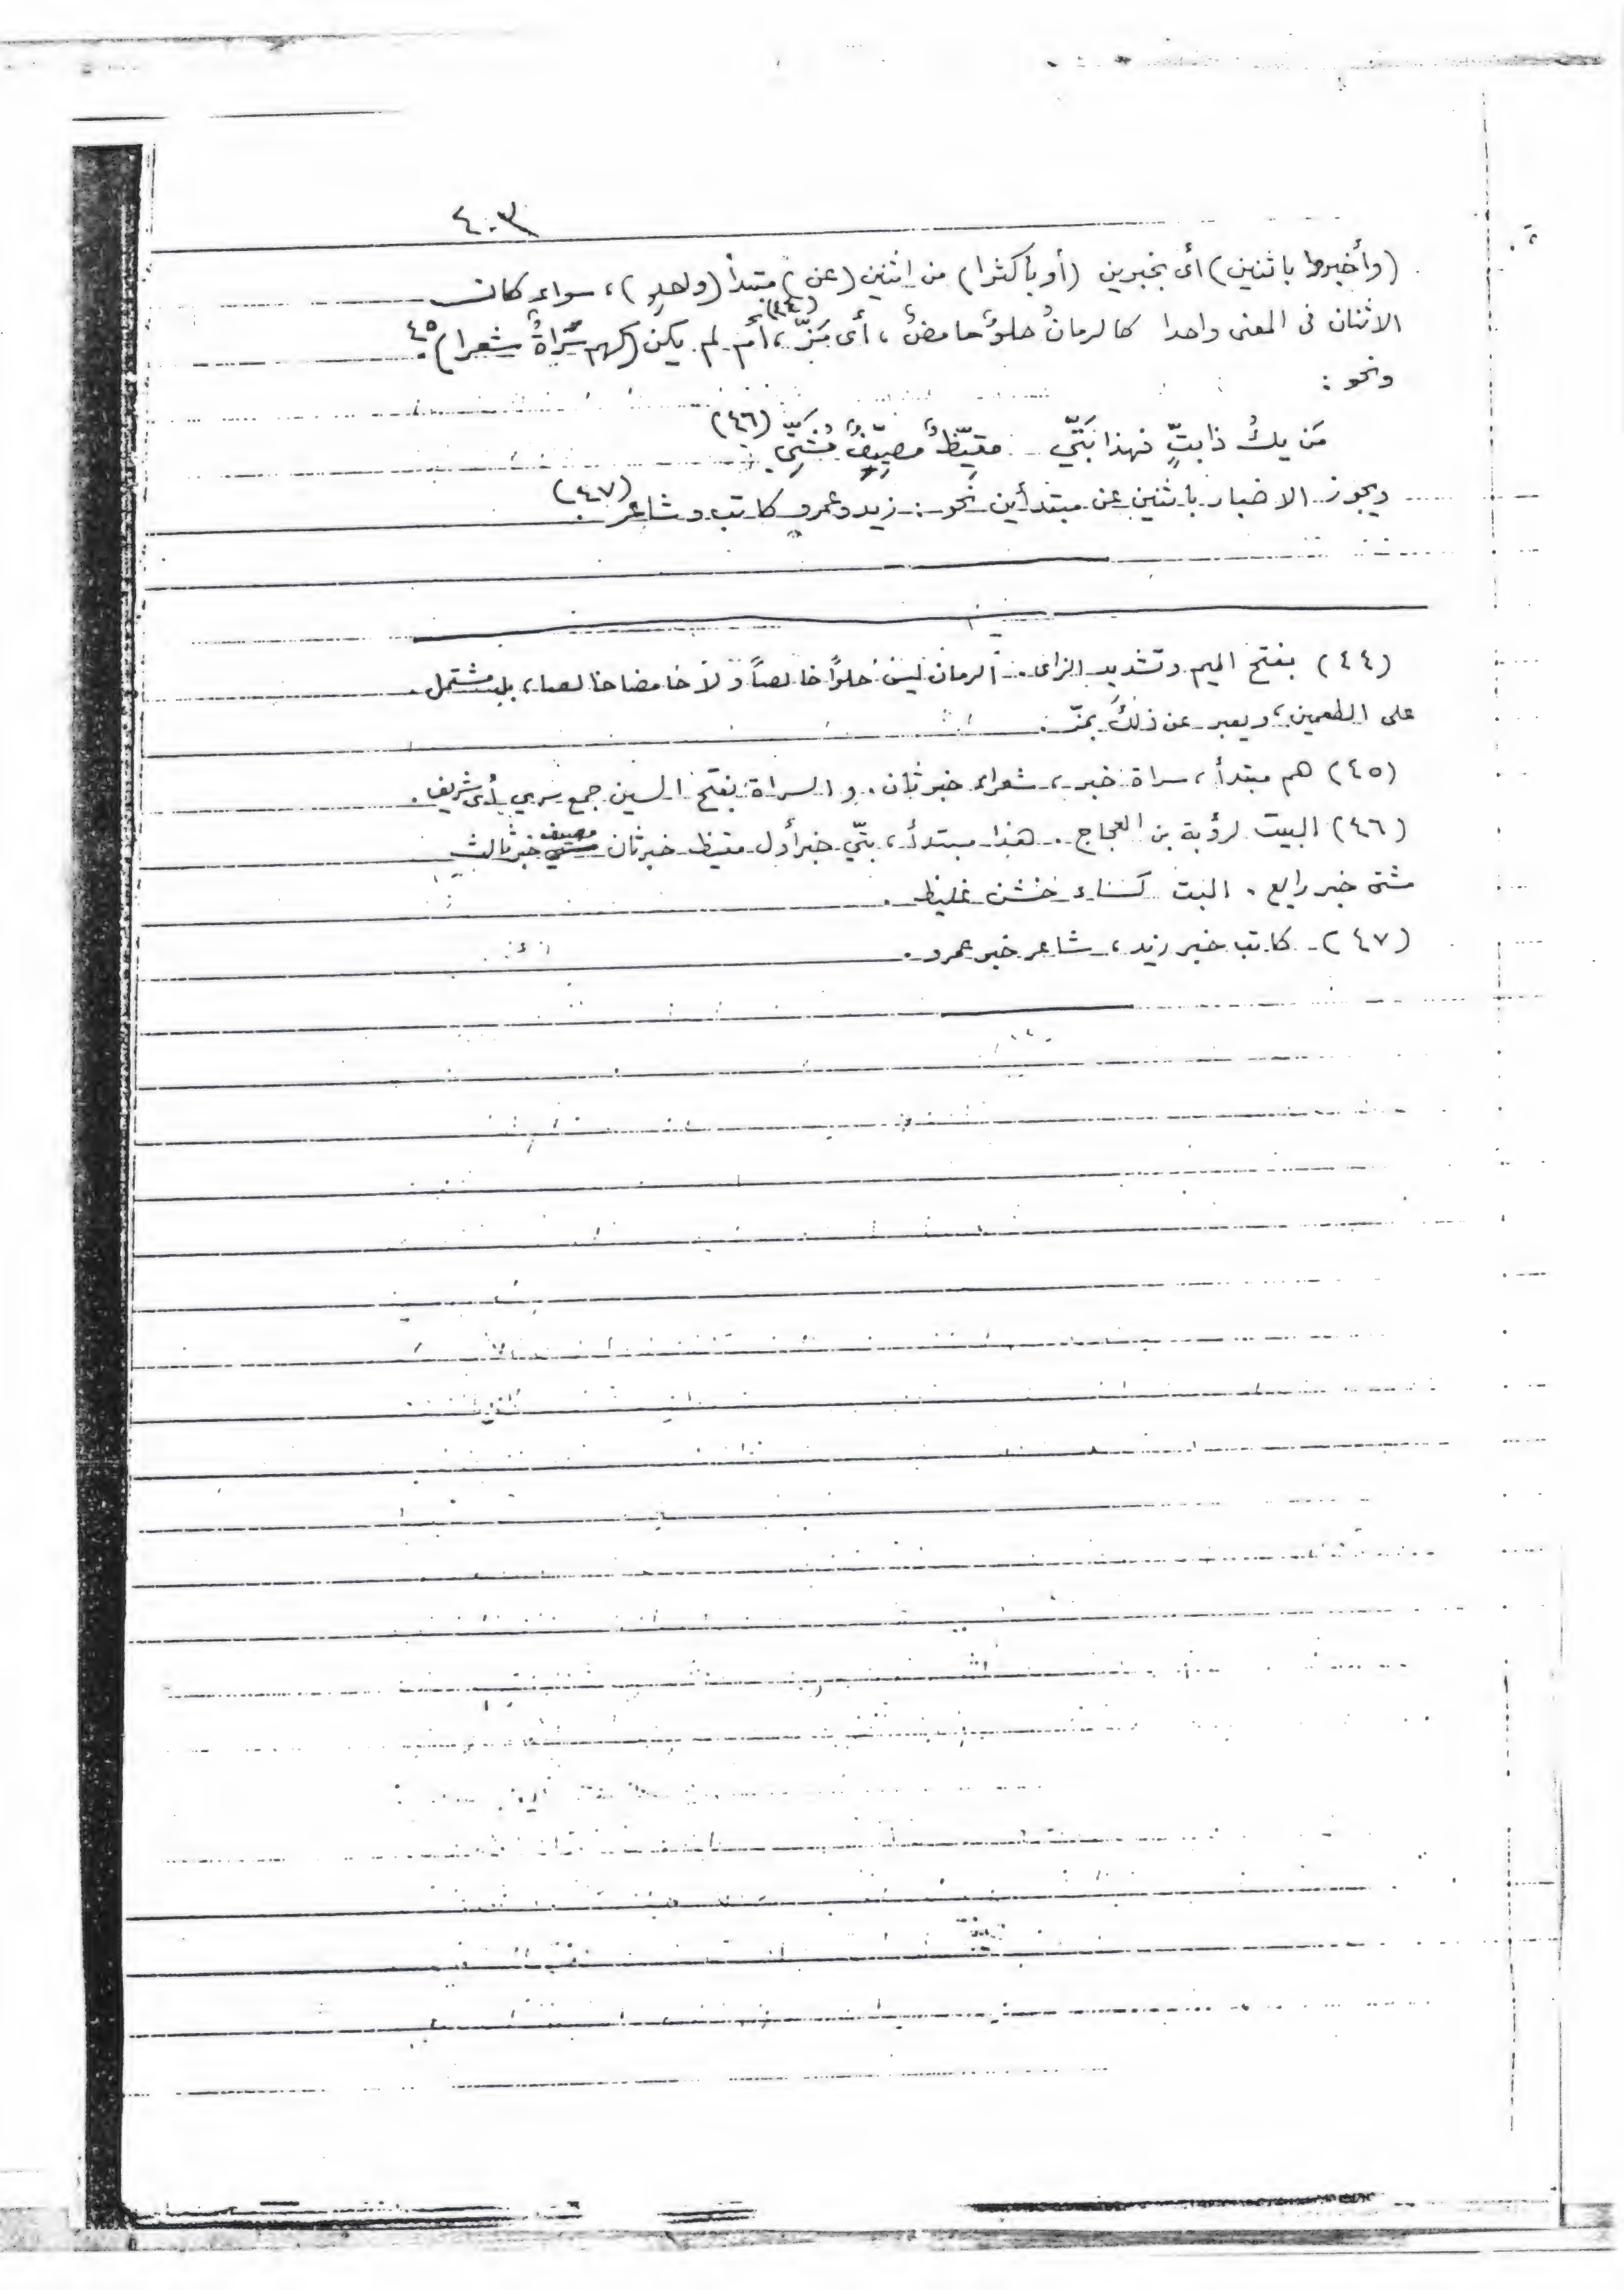 ٤٠٣
(وأخبروا باثنين) أى بخبرين (أو بأكثرا) من اثنين (عن) مبتدأ (واحد)، سواء كانت
الاثنان فى المعنى واحدا كالرمانُ حلوٌ حامضٌ، أى مَزّ(٤٤)، أم لم يكن (كهم سَراةٌ شعرا)٤٥.
ونحو:
مَن يكُ ذا بتٍّ فهذا بَتّي مقيّظٌ مصيّفٌ مُشَتِّي (٤٦)
ويجوز الاخبار باثنين عن مبتدأين نحو: زيد وعمرو كاتب وشاعر (٤٧).
(٤٤) بفتح الميم وتشديد الزاى. الرمان ليس حلوًا خالصاً ولا حامضا خالصا، بل مشتمل
على الطعمين، ويعبر عن ذلك بمزّ.
(٤٥) هم مبتدأ، سراة خبر، شعراء خبر ثان. والسراة بفتح السين جمع سري أى شريف.
(٤٦) البيت لرؤبة بن العجاج. هذا مبتدأ، بتّي خبر أول مقيظ خبر ثان مصيف خبر ثالث
مشتى خبر رابع. البت كساء خشن غليظ.
(٤٧) كاتب خبر زيد، شاعر خبر عمرو.